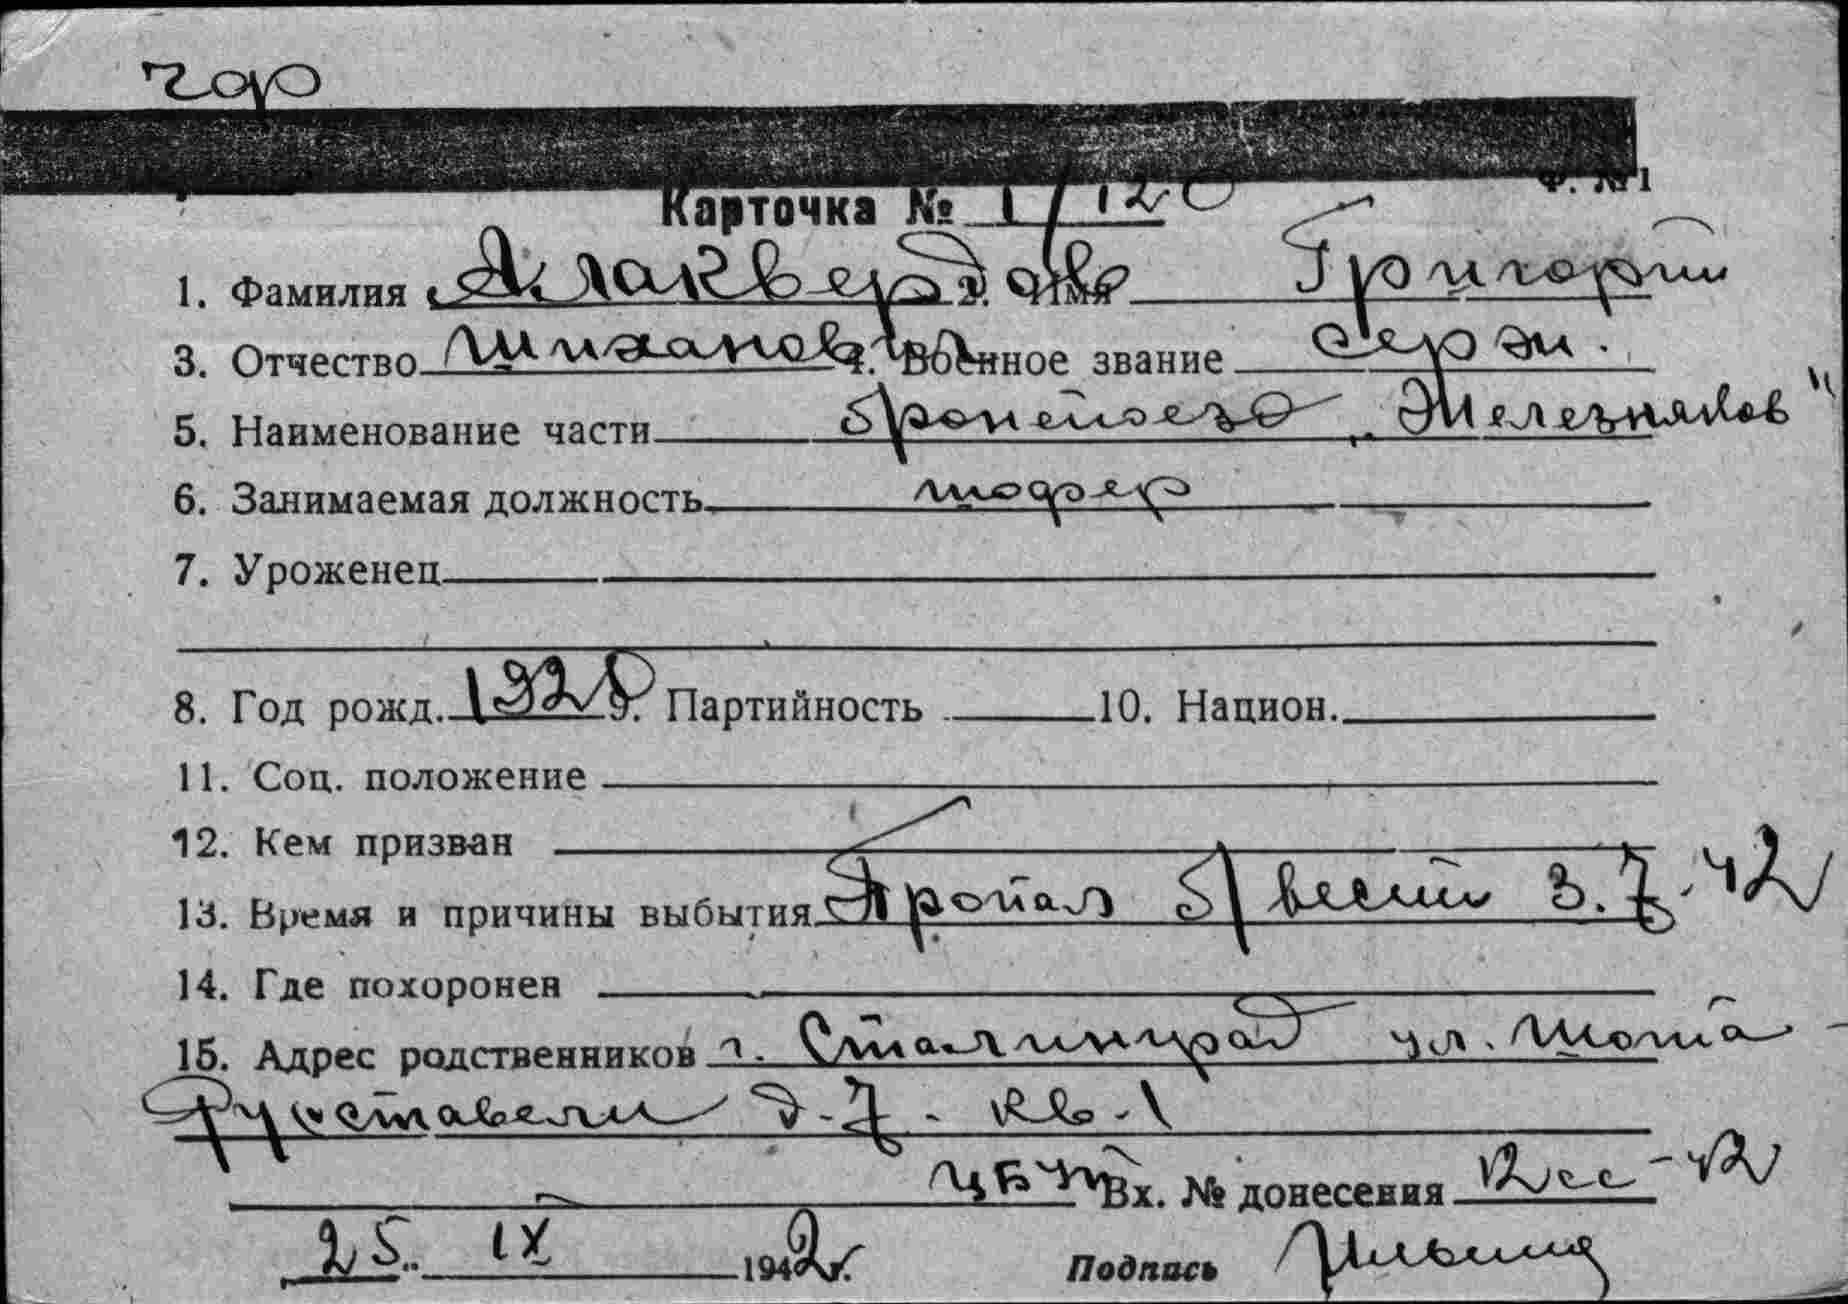 чф
Ф. № 1
Карточка № 1/120
1. Фамилия Алаквердов 2. Имя Григорий
3. Отчество Шиханович 4. Военное звание серж.
5. Наименование части бронепоезд „Железняков"
6. Занимаемая должность шофер
7. Уроженец
8. Год рожд. 1920 9. Партийность 10. Национ.
11. Соц. положение
12. Кем призван
13. Время и причины выбытия Пропал б/вести 3.7.42
14. Где похоронен
15. Адрес родственников г. Сталинград ул. Шота
Руставели д. 7. кв. 1
Вх. № донесения 12сс-42
25. IX 1942г. Подпись